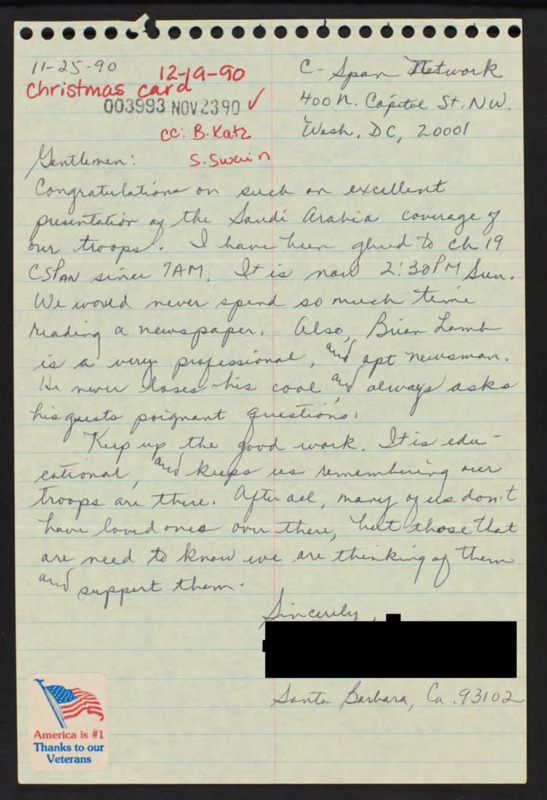 11-25-90
12-19-90
Christmas card
003993 NOV 23 90 ✓
cc: B. Katz
S. Swain
C-Span Network
400 N. Capitol St. NW.
Wash, DC, 20001
Gentlemen:
Congratulations on such an excellent
presentation of the Saudi Arabia coverage of
our troops. I have been glued to ch 19
CSPAN since 7AM. It is now 2:30 PM Sun.
We would never spend so much time
reading a newspaper. Also, Brian Lamb
is a very professional, and apt newsman.
He never loses his cool and always asks
his guests poignant questions.
Keep up the good work. It is edu-
cational, and keeps us remembering our
troops are there. After all, many of us don't
have loved ones over there, but those that
are need to know we are thinking of them
and support them.
Sincerely,
Santa Barbara, Ca. 93102
America is #1
Thanks to our
Veterans